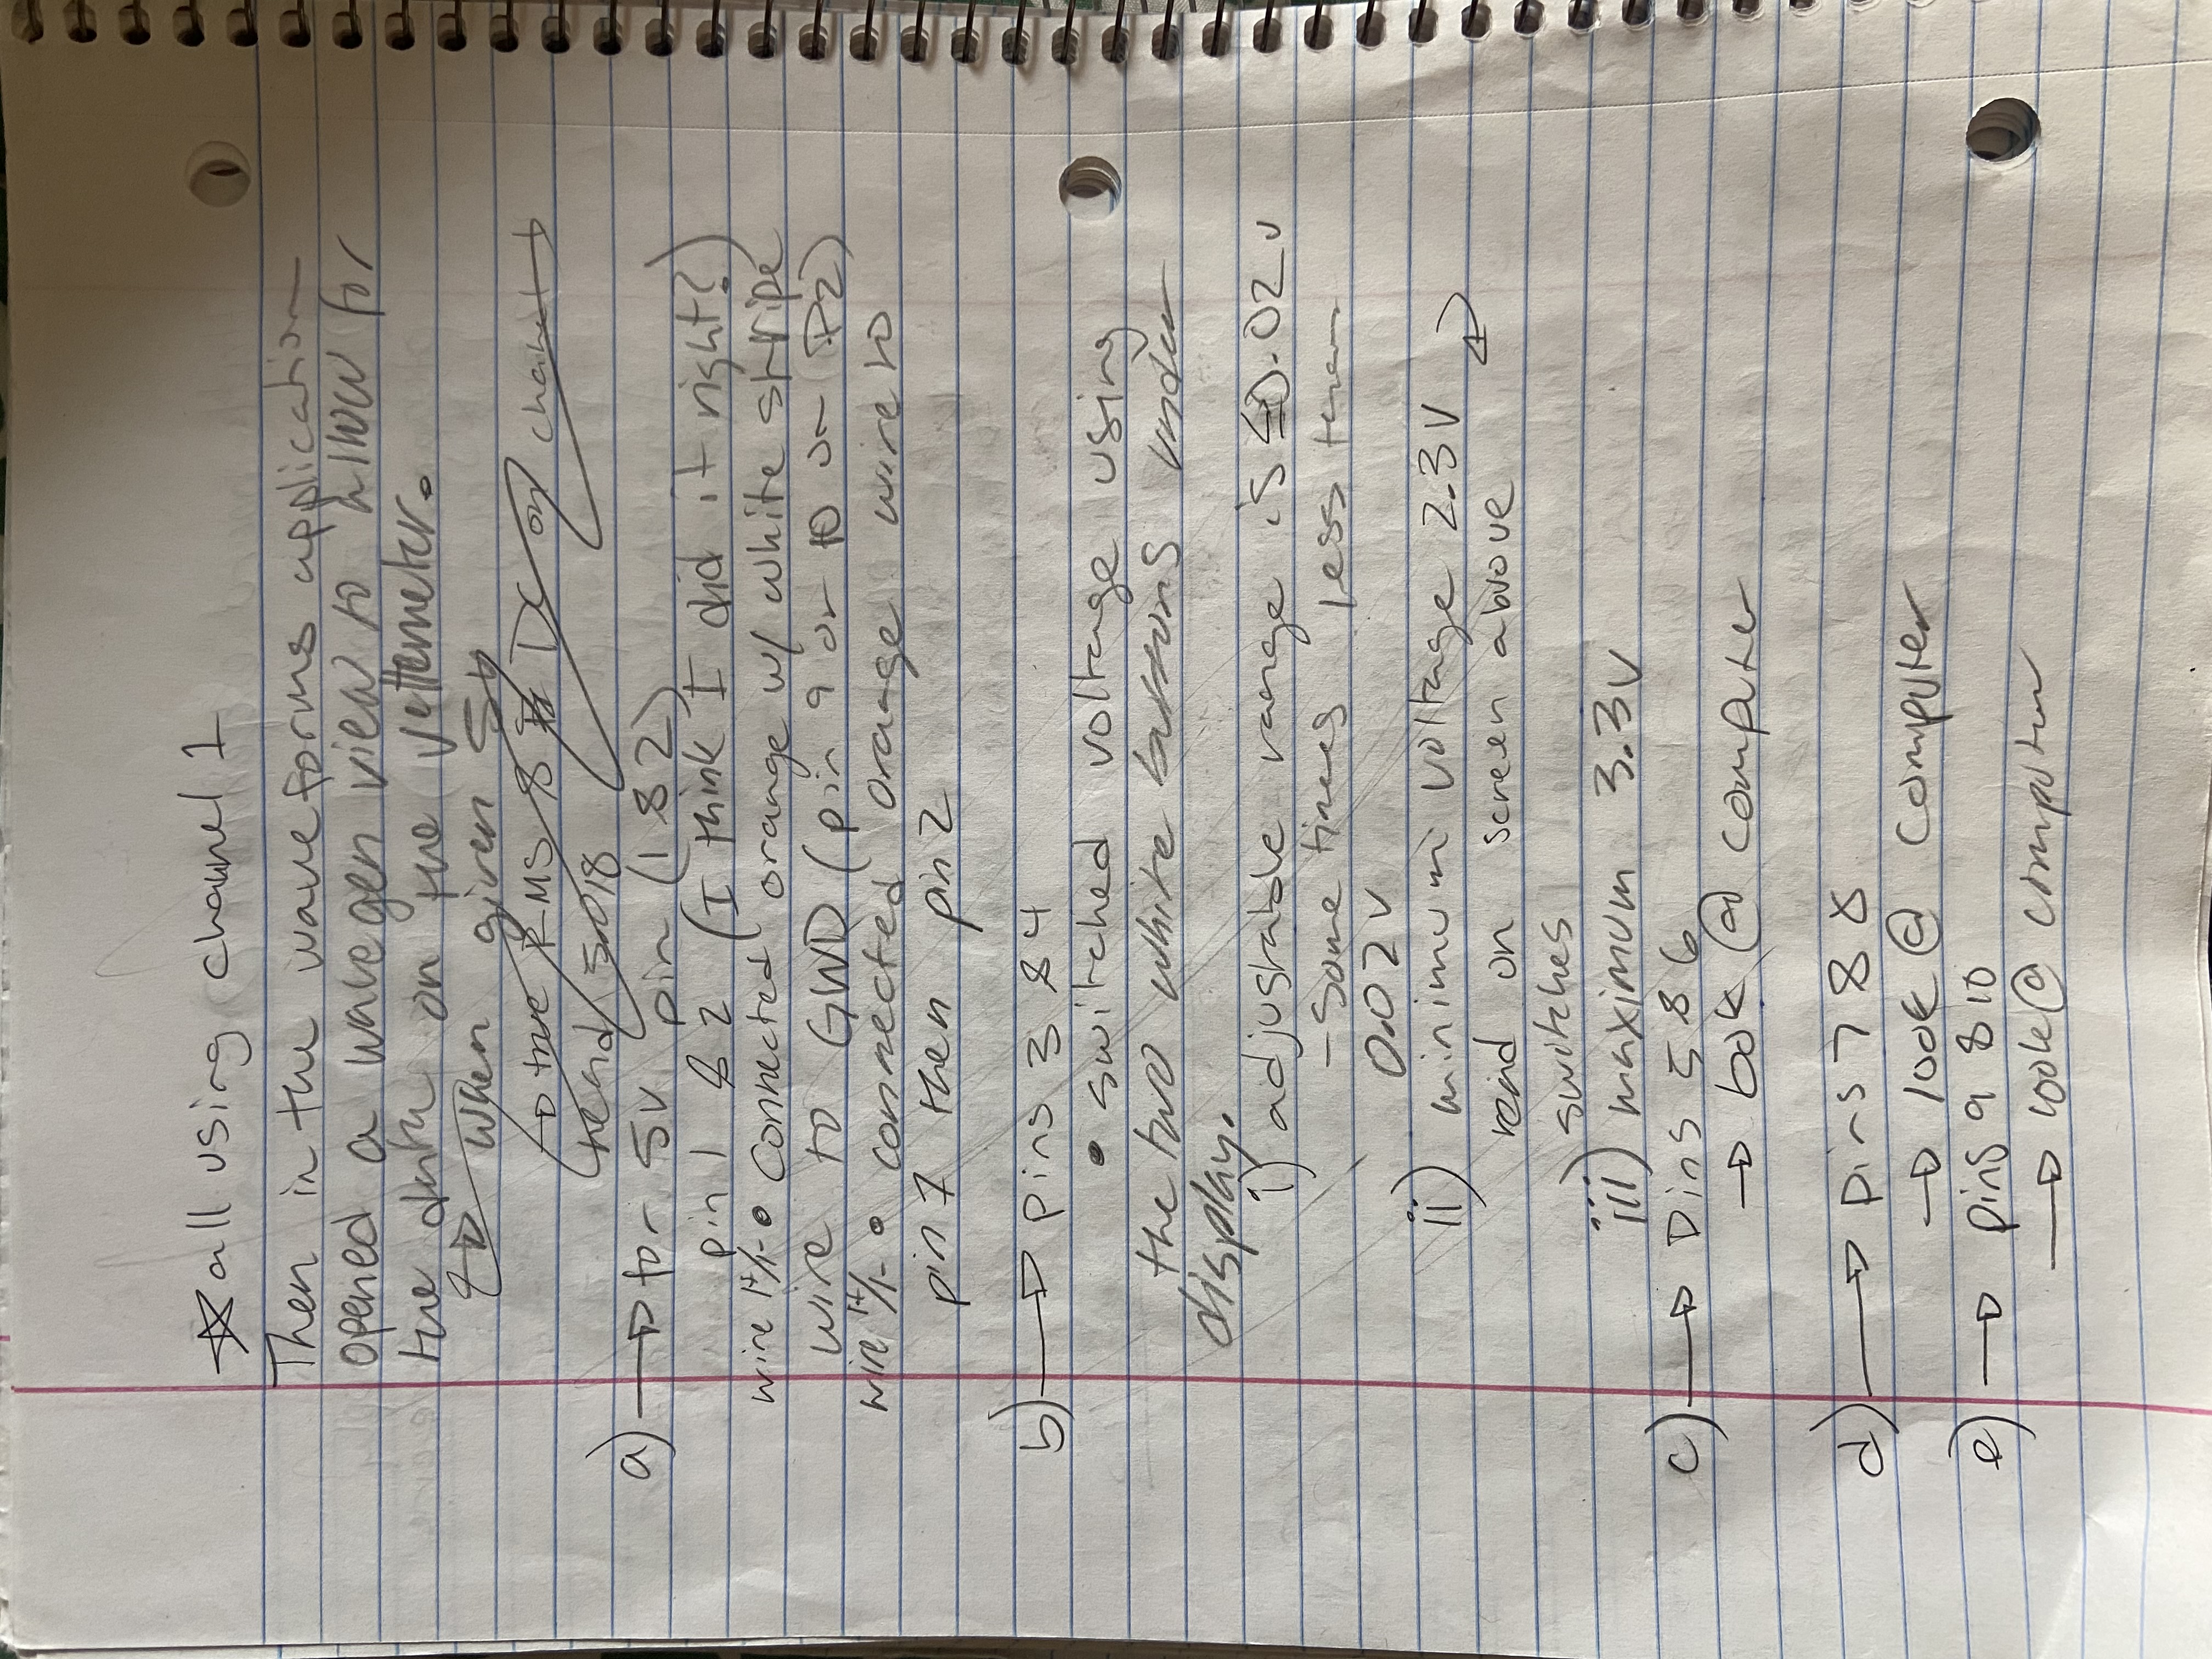 ☆ all using channel 1
Then in the waveforms application
opened a wavegen view to allow for
the data on the voltemeter.
↳ when given 5v
→ true RMS & DC on channel 1
read 5.018
a) → for 5V pin (1 & 2)
pin 1 & 2 (I think I did it right?)
wire 1+/1- • connected orange w/ white stripe
wire to GND (pin 9 or 10 on P2)
wire 1+/1- • connected orange wire to
pin 1 then pin 2
b) → pins 3 & 4
• switched voltage using
the two white buttons under
display.
i) adjustable range is ≤0.02 v
- some times less than
0.02 v
ii) minimum voltage 2.3 V
read on screen above
switches
iii) maximum 3.3 v
c) → Pins 5 & 6
→ look @ computer
d) → pins 7 & 8
→ look @ computer
e) → pins 9 & 10
→ look @ computer